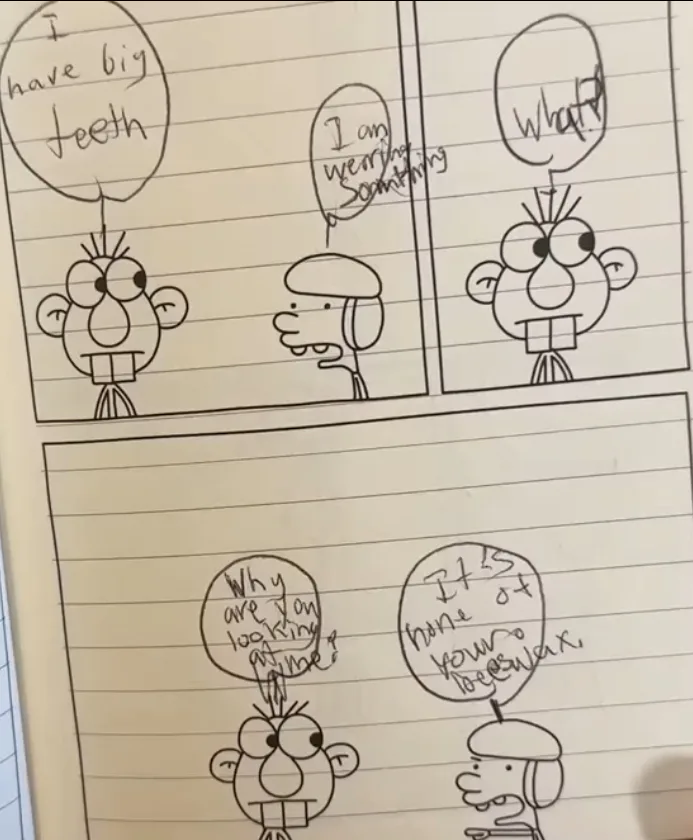 I
have big
teeth
I am
werring
Somthing
What?
Why
are you
looking
at me?
It is
none of
your
beeswax.